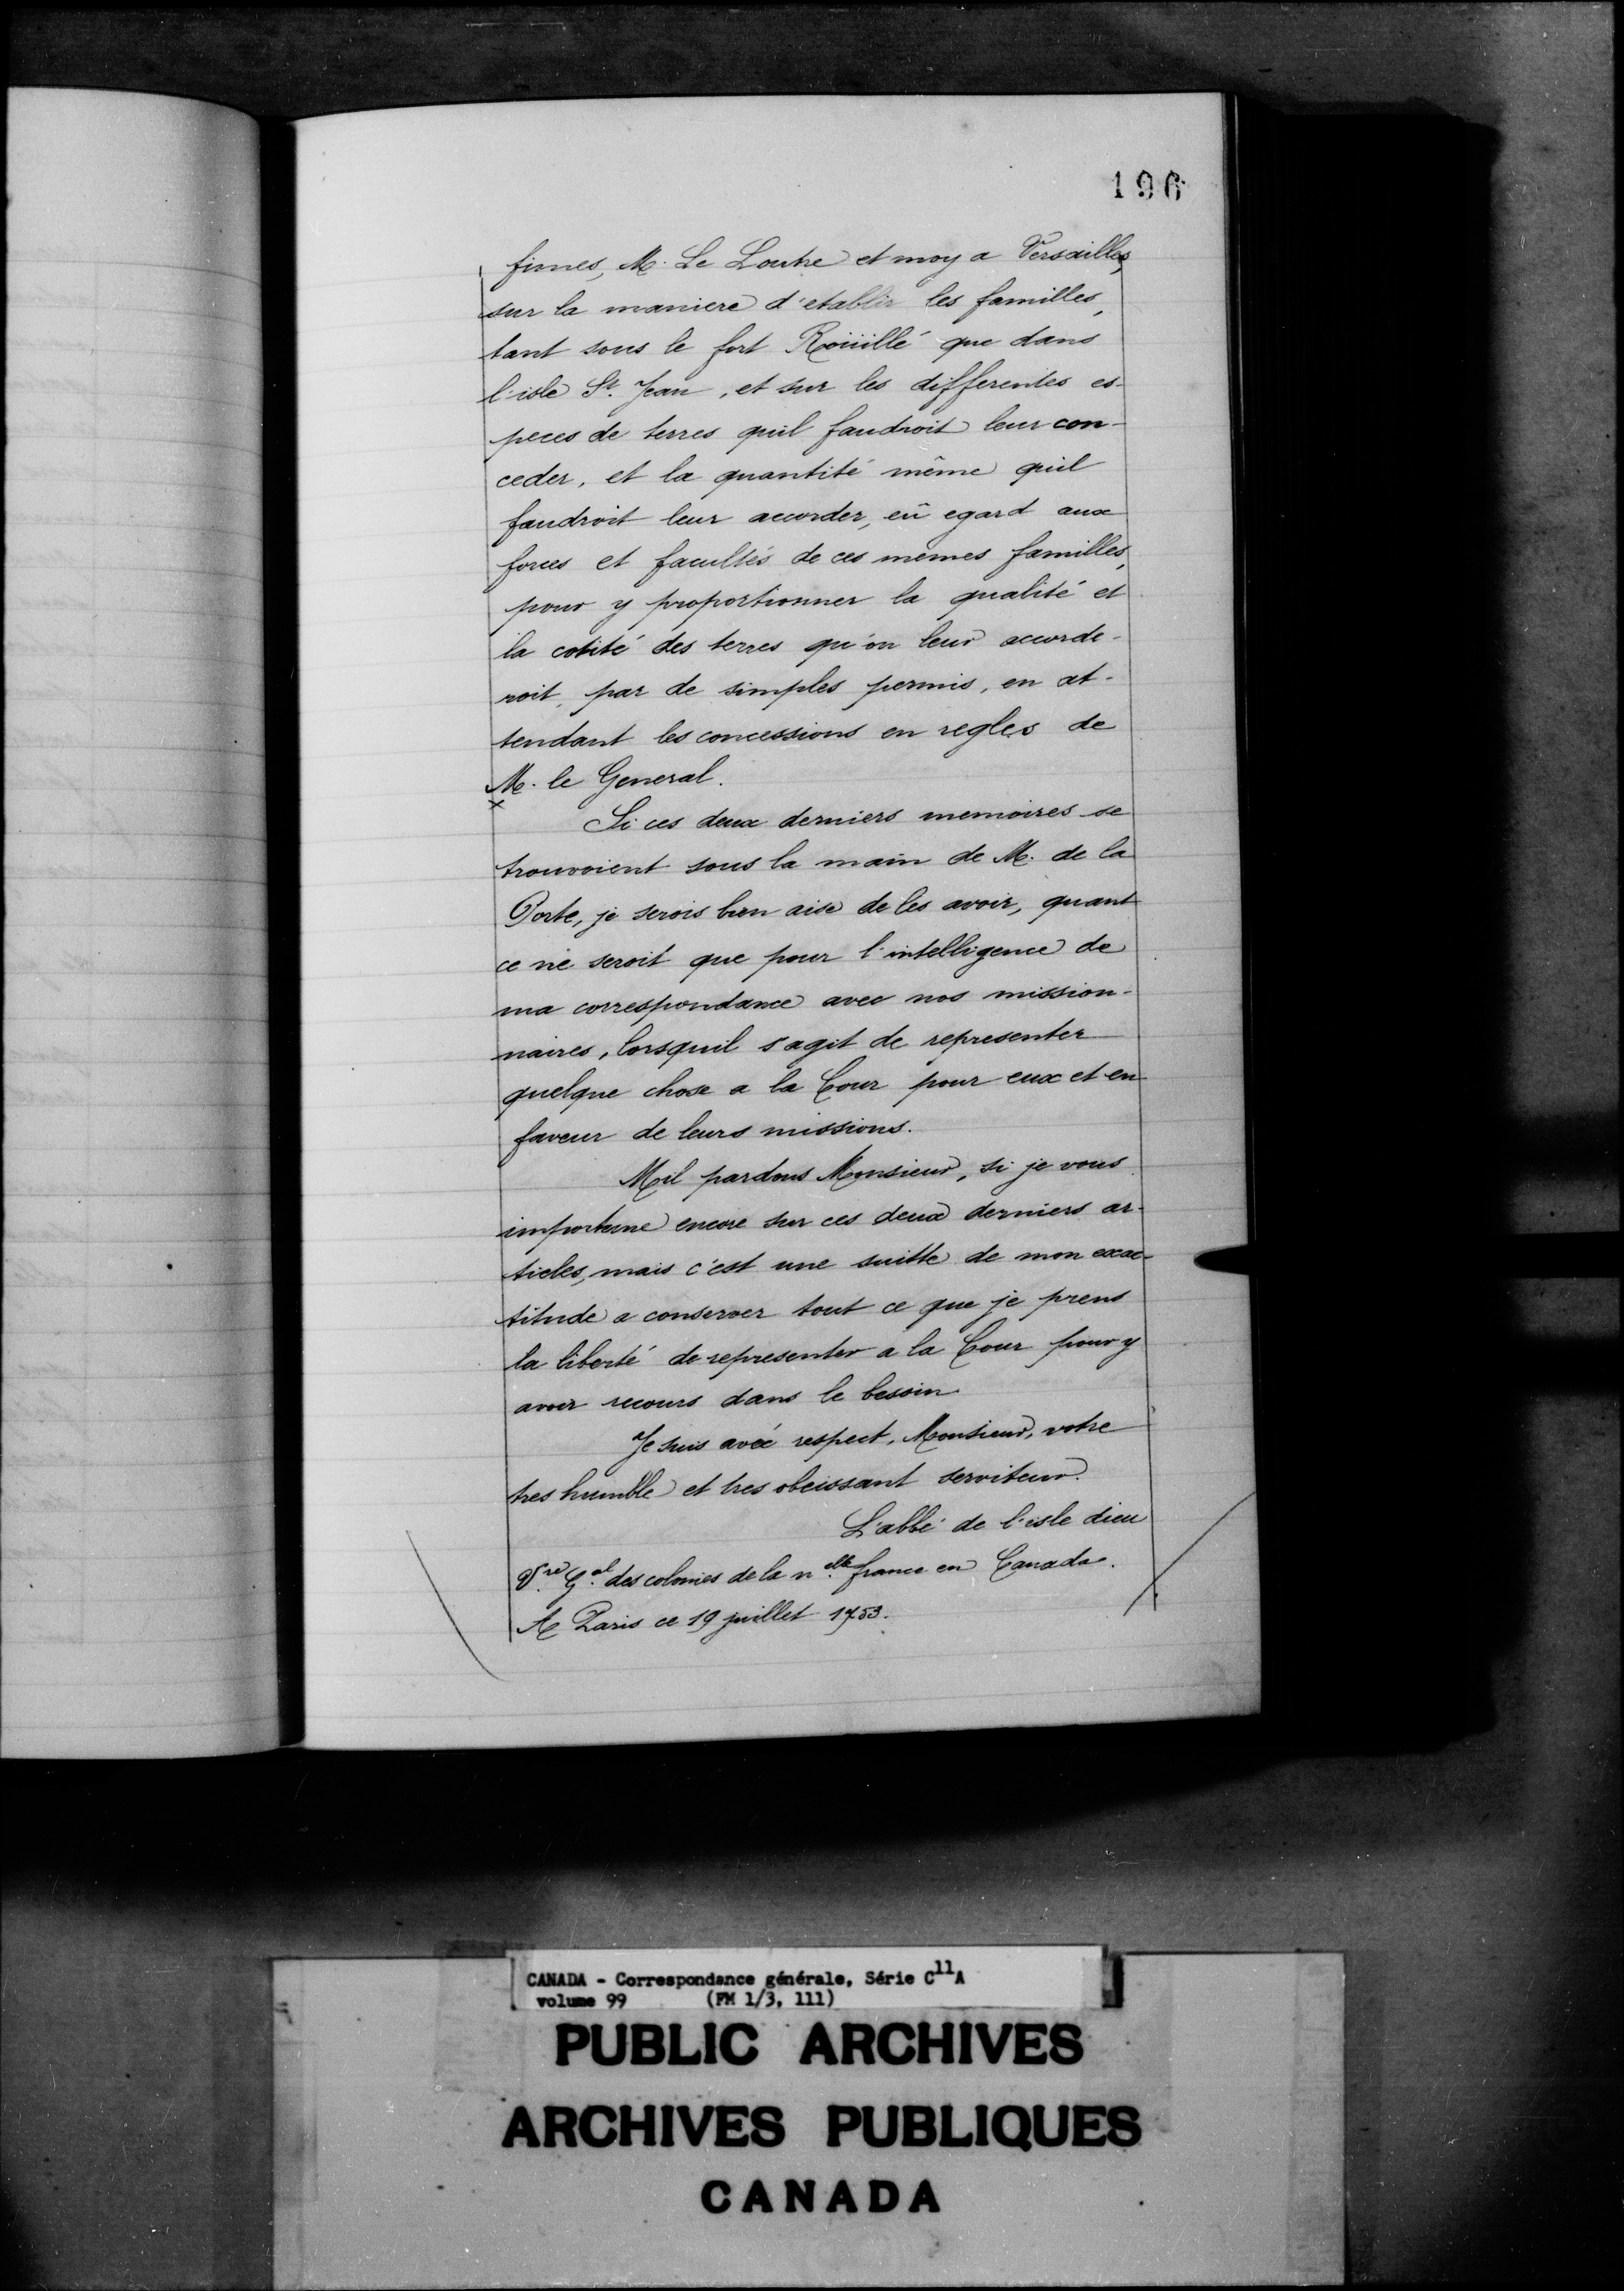 196
fimes, M. Le Loutre et moy a Versailles,
sur la maniere d'etablir les familles,
tant sous le fort Roüillé que dans
l'isle St. Jean, et sur les differentes es-
peces de terres quil faudroit leur con-
ceder, et la quantité même quil
faudroit leur accorder, eû egard aux
forces et facultés de ces memes familles,
pour y proportionner la qualité et
la cotité des terres qu'on leur accorde-
roit, par de simples permis, en at-
tendant les concessions en regles de
M. le General.
x
Si ces deux derniers memoires se
trouvoient sous la main de M. de la
Porte, je serois bien aise de les avoir, quant
ce ne seroit que pour l'intelligence de
ma correspondance avec nos mission-
naires, lorsquil s'agit de representer
quelque chose a la Cour pour eux et en
faveur de leurs missions.
Mil pardons Monsieur, si je vous
importune encore sur ces deux derniers ar-
ticles, mais c'est une suitte de mon exac-
titude a conserver tout ce que je prens
la liberté de representer a la Cour pour y
avoir recours dans le besoin
Je suis avec respect, Monsieur, votre
tres humble et tres obeissant serviteur.
L'abbé de l'isle dieu
V.re G.al des colonies de la n.elle france en Canada.
A Paris ce 19 juillet 1753.
CANADA - Correspondance générale, Série C11A
volume 99 (FM 1/3, 111)
PUBLIC ARCHIVES
ARCHIVES PUBLIQUES
CANADA